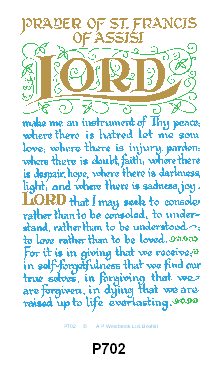 PRAYER OF ST. FRANCIS
OF ASSISI
LORD
make me an instrument of Thy peace;
where there is hatred let me sow
love; where there is injury, pardon;
where there is doubt, faith; where there
is despair, hope, where there is darkness,
light, and where there is sadness, joy.
LORD that I may seek to console
rather than to be consoled, to under-
stand, rather than to be understood
to love rather than to be loved.
For it is in giving that we receive,
in self-forgetfulness that we find our
true selves, in forgiving that we
are forgiven, in dying that we are
raised up to life everlasting.
P702 © A P
P702